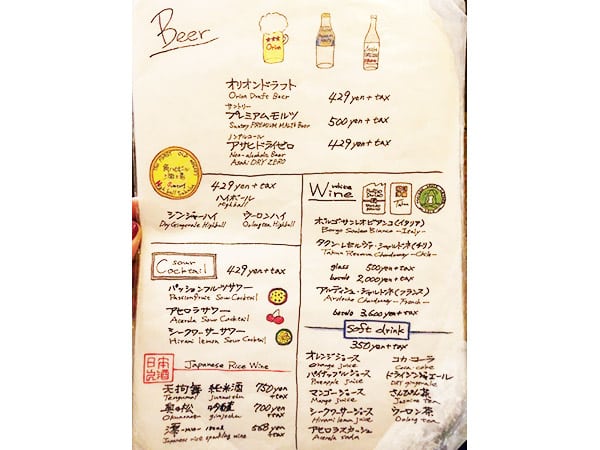 Beer
Orion
オリオンドラフト
Orion Draft Beer
429 yen + tax
サントリー
プレミアムモルツ
Suntory PREMIUM MALT's Beer
500 yen + tax
ノンアルコール
アサヒドライゼロ
Non-alcoholic Beer
Asahi DRY ZERO
429 yen + tax
429 yen + tax
ハイボール
Highball
ジンジャーハイ
Dry Gingerale Highball
ウーロンハイ
Oolong tea Highball
Sour
Cocktail
429 yen + tax
パッションフルーツサワー
Passionfruit Sour Cocktail
アセロラサワー
Acerola Sour Cocktail
シークワーサーサワー
Hirami lemon Sour Cocktail
日本酒
Japanese Rice Wine
天狗舞 純米酒 750 yen + tax
Tengumai
奥の松 吟醸 700 yen + tax
Okunomatsu ginjoshu
澪 -mio- 568 yen + tax
Japanese rice sparkling wine
White
Wine
Takun
ボルゴ・サンレオ ビアンコ (イタリア)
Borgo Sanleo Bianco -Italy-
タクン・レセルヴァ・シャルドネ (チリ)
Takun Reserva Chardonnay -Chile-
glass 500 yen + tax
2,000 yen + tax
アルディッシュ・シャルドネ (フランス)
Ardeche Chardonnay -French-
3,600 yen + tax
Soft drink
350 yen + tax
オレンジジュース
Orange juice
コカ・コーラ
Coca cobe
パイナップルジュース
Pineapple juice
ドライジンジャエール
DRY gingerale
マンゴージュース
Mango juice
さんぴん茶
Jasmine tea
シークワーサージュース
Hirami lemon juice
ウーロン茶
Oolong tea
アセロラスカッシュ
Acerola soda